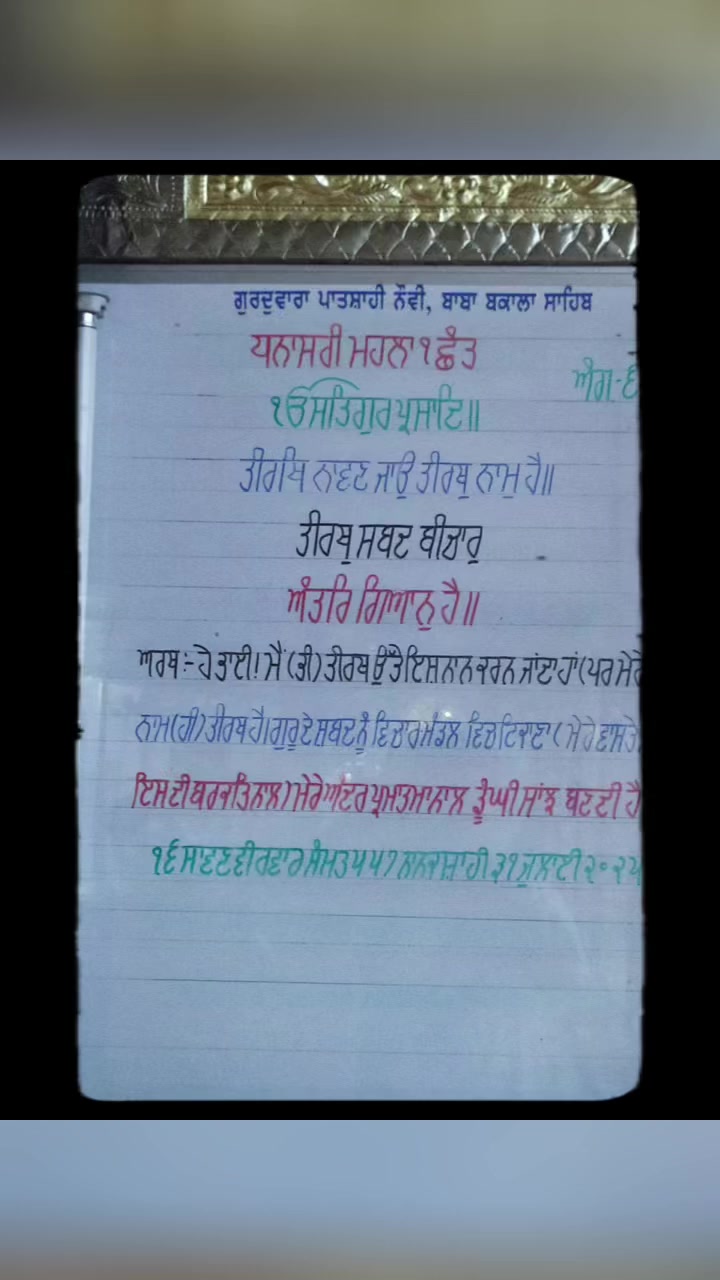 ਗੁਰਦੁਵਾਰਾ ਪਾਤਸ਼ਾਹੀ ਨੌਵੀਂ, ਬਾਬਾ ਬਕਾਲਾ ਸਾਹਿਬ
ਧਨਾਸਰੀ ਮਹਲਾ ੧ ਛੰਤ
ਅੰਗ-੬
ੴ ਸਤਿਗੁਰ ਪ੍ਰਸਾਦਿ॥
ਤੀਰਥਿ ਨਾਵਣ ਜਾਉ ਤੀਰਥੁ ਨਾਮੁ ਹੈ॥
ਤੀਰਥੁ ਸਬਦ ਬੀਚਾਰੁ
ਅੰਤਰਿ ਗਿਆਨੁ ਹੈ॥
ਅਰਥ:- ਹੇ ਭਾਈ! ਮੈਂ (ਭੀ) ਤੀਰਥ ਉੱਤੇ ਇਸ਼ਨਾਨ ਕਰਨ ਜਾਂਦਾ ਹਾਂ (ਪਰ ਮੇਰੇ
ਨਾਮ (ਹੀ) ਤੀਰਥ ਹੈ। ਗੁਰੂ ਦੇ ਸ਼ਬਦ ਨੂੰ ਵਿਚਾਰ ਮੰਡਲ ਵਿਚ ਟਿਕਾਣਾ (ਮੇਰੇ ਵਾਸਤੇ
ਇਸ ਦੀ ਬਰਕਤਿ ਨਾਲ) ਮੇਰੇ ਅੰਦਰ ਪ੍ਰਮਾਤਮਾ ਨਾਲ ਡੂੰਘੀ ਸਾਂਝ ਬਣਦੀ ਹੈ
੧੬ ਸਾਵਣ ਵੀਰਵਾਰ ਸੰਮਤ ੫੫੭ ਨਾਨਕਸ਼ਾਹੀ ੩੧ ਜੁਲਾਈ ੨੦੨੫